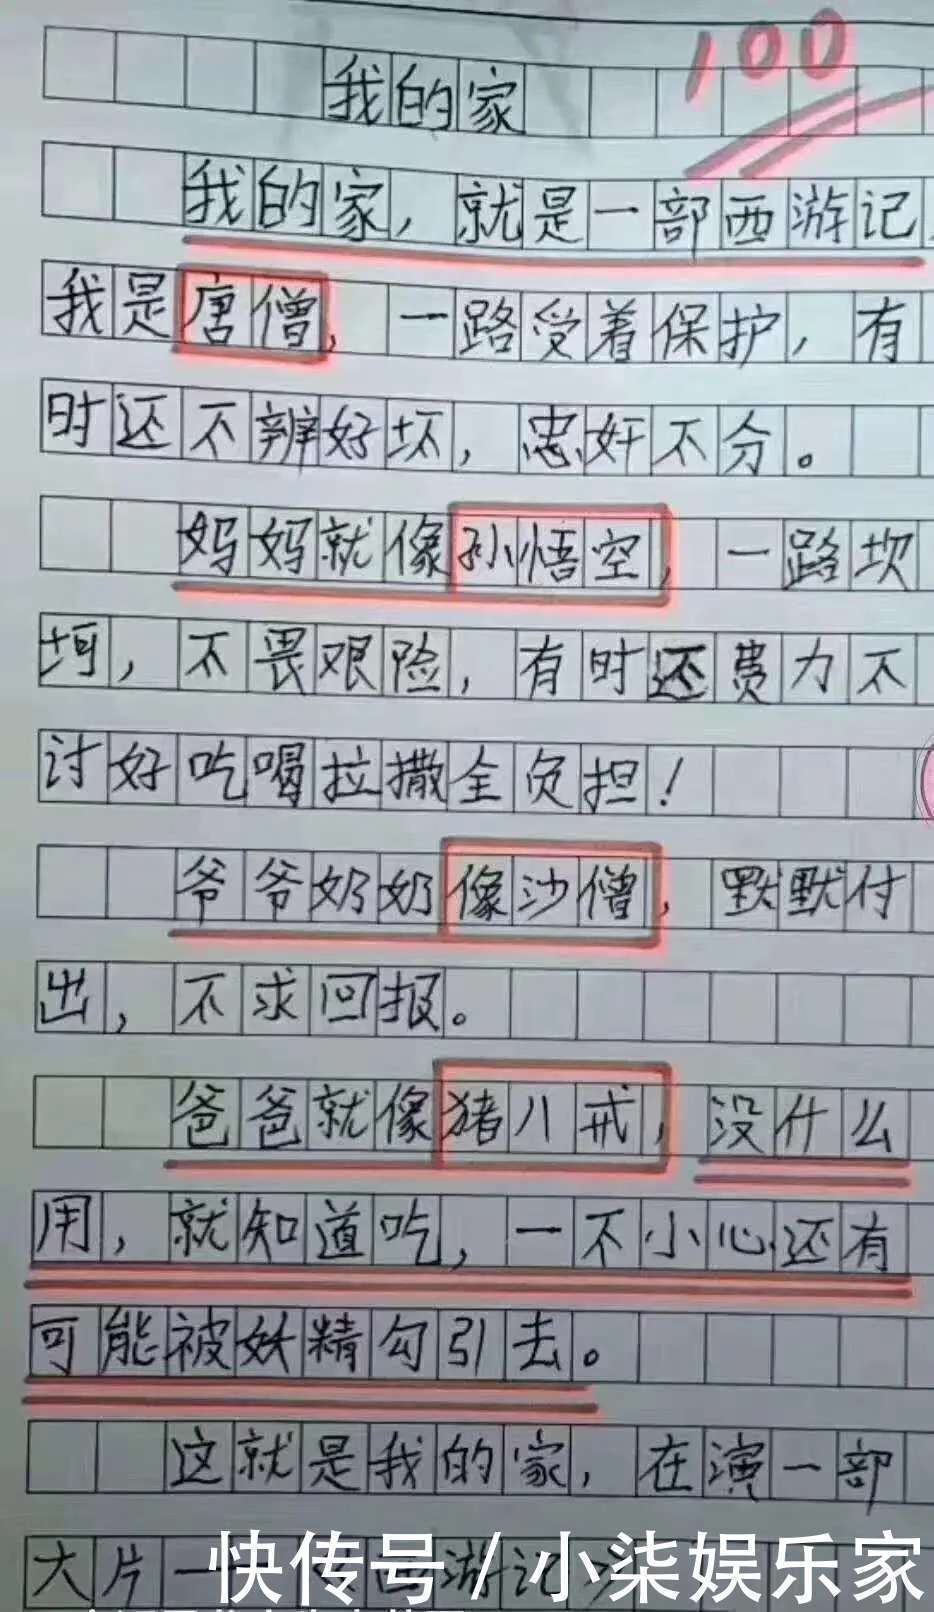 100
我的家
我的家，就是一部西游记
我是唐僧，一路受着保护，有
时还不辨好坏，忠奸不分。
妈妈就像孙悟空，一路坎
坷，不畏艰险，有时还费力不
讨好吃喝拉撒全负担！
爷爷奶奶像沙僧，默默付
出，不求回报。
爸爸就像猪八戒，没什么
用，就知道吃，一不小心还有
可能被妖精勾引去。
这就是我的家，在演一部
大片一
西游记
快传号 / 小柒娱乐家